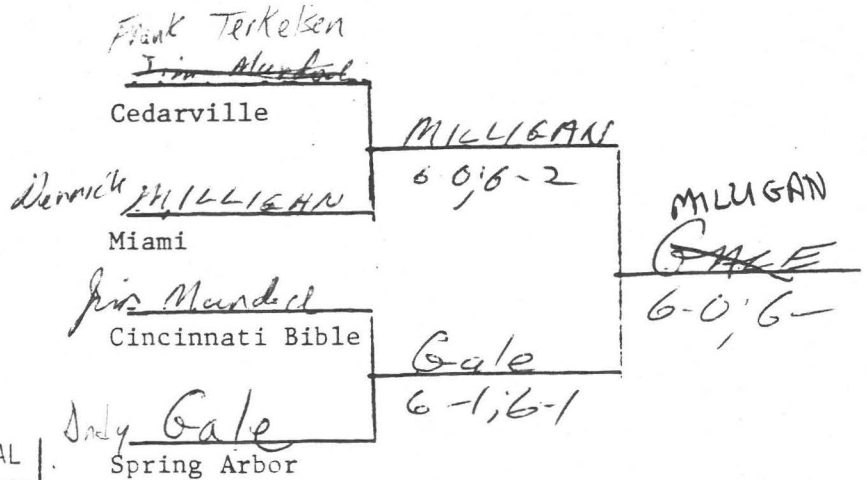 Frank Terkelsen
Jim
Cedarville
MILLIGAN
6-0; 6-2
Derrick MILLIGAN
Miami
MILLIGAN
GALE
6-0; 6-
Jim
Cincinnati Bible
Gale
6-1; 6-1
Andy Gale
Spring Arbor
AL